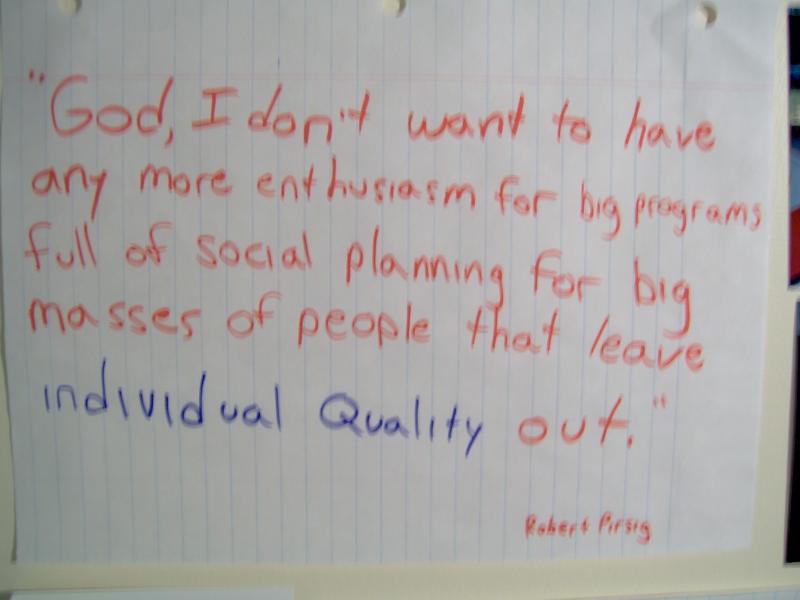 "God, I don't want to have
any more enthusiasm for big programs
full of social planning for big
masses of people that leave
individual Quality out."
Robert Pirsig